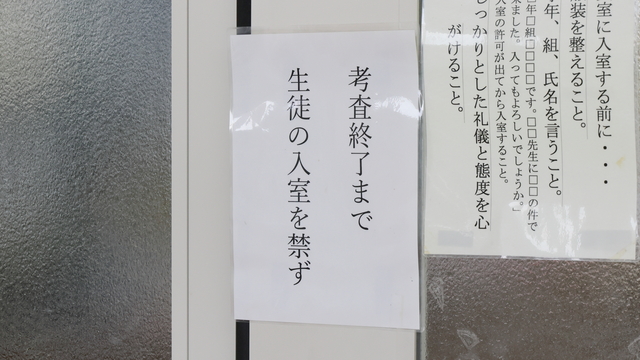 室に入室する前に・・・
装を整えること。
年、組、氏名を言うこと。
年□組□□□□です。□□先生に□□の件で
来ました。入ってもよろしいでしょうか。」
入室の許可が出てから入室すること。
しっかりとした礼儀と態度を心
がけること。
考査終了まで
生徒の入室を禁ず